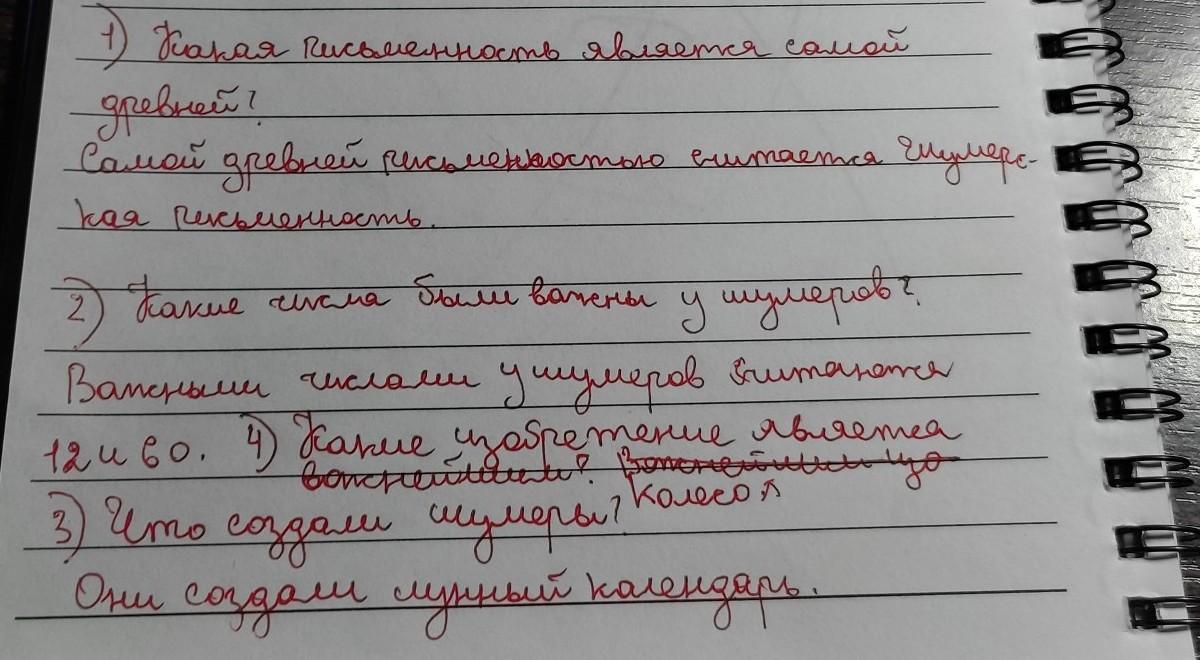 1) Какая письменность является самой
древней?
Самой древней письменностью считается шумерс-
кая письменность.
2) Какие числа были важны у шумеров?
Важными числами у шумеров считаются
12 и 60. 4) Какие изобретение является
важнейшим? Важнейшим изо
3) Что создали шумеры? Колесо
Они создали лунный календарь.